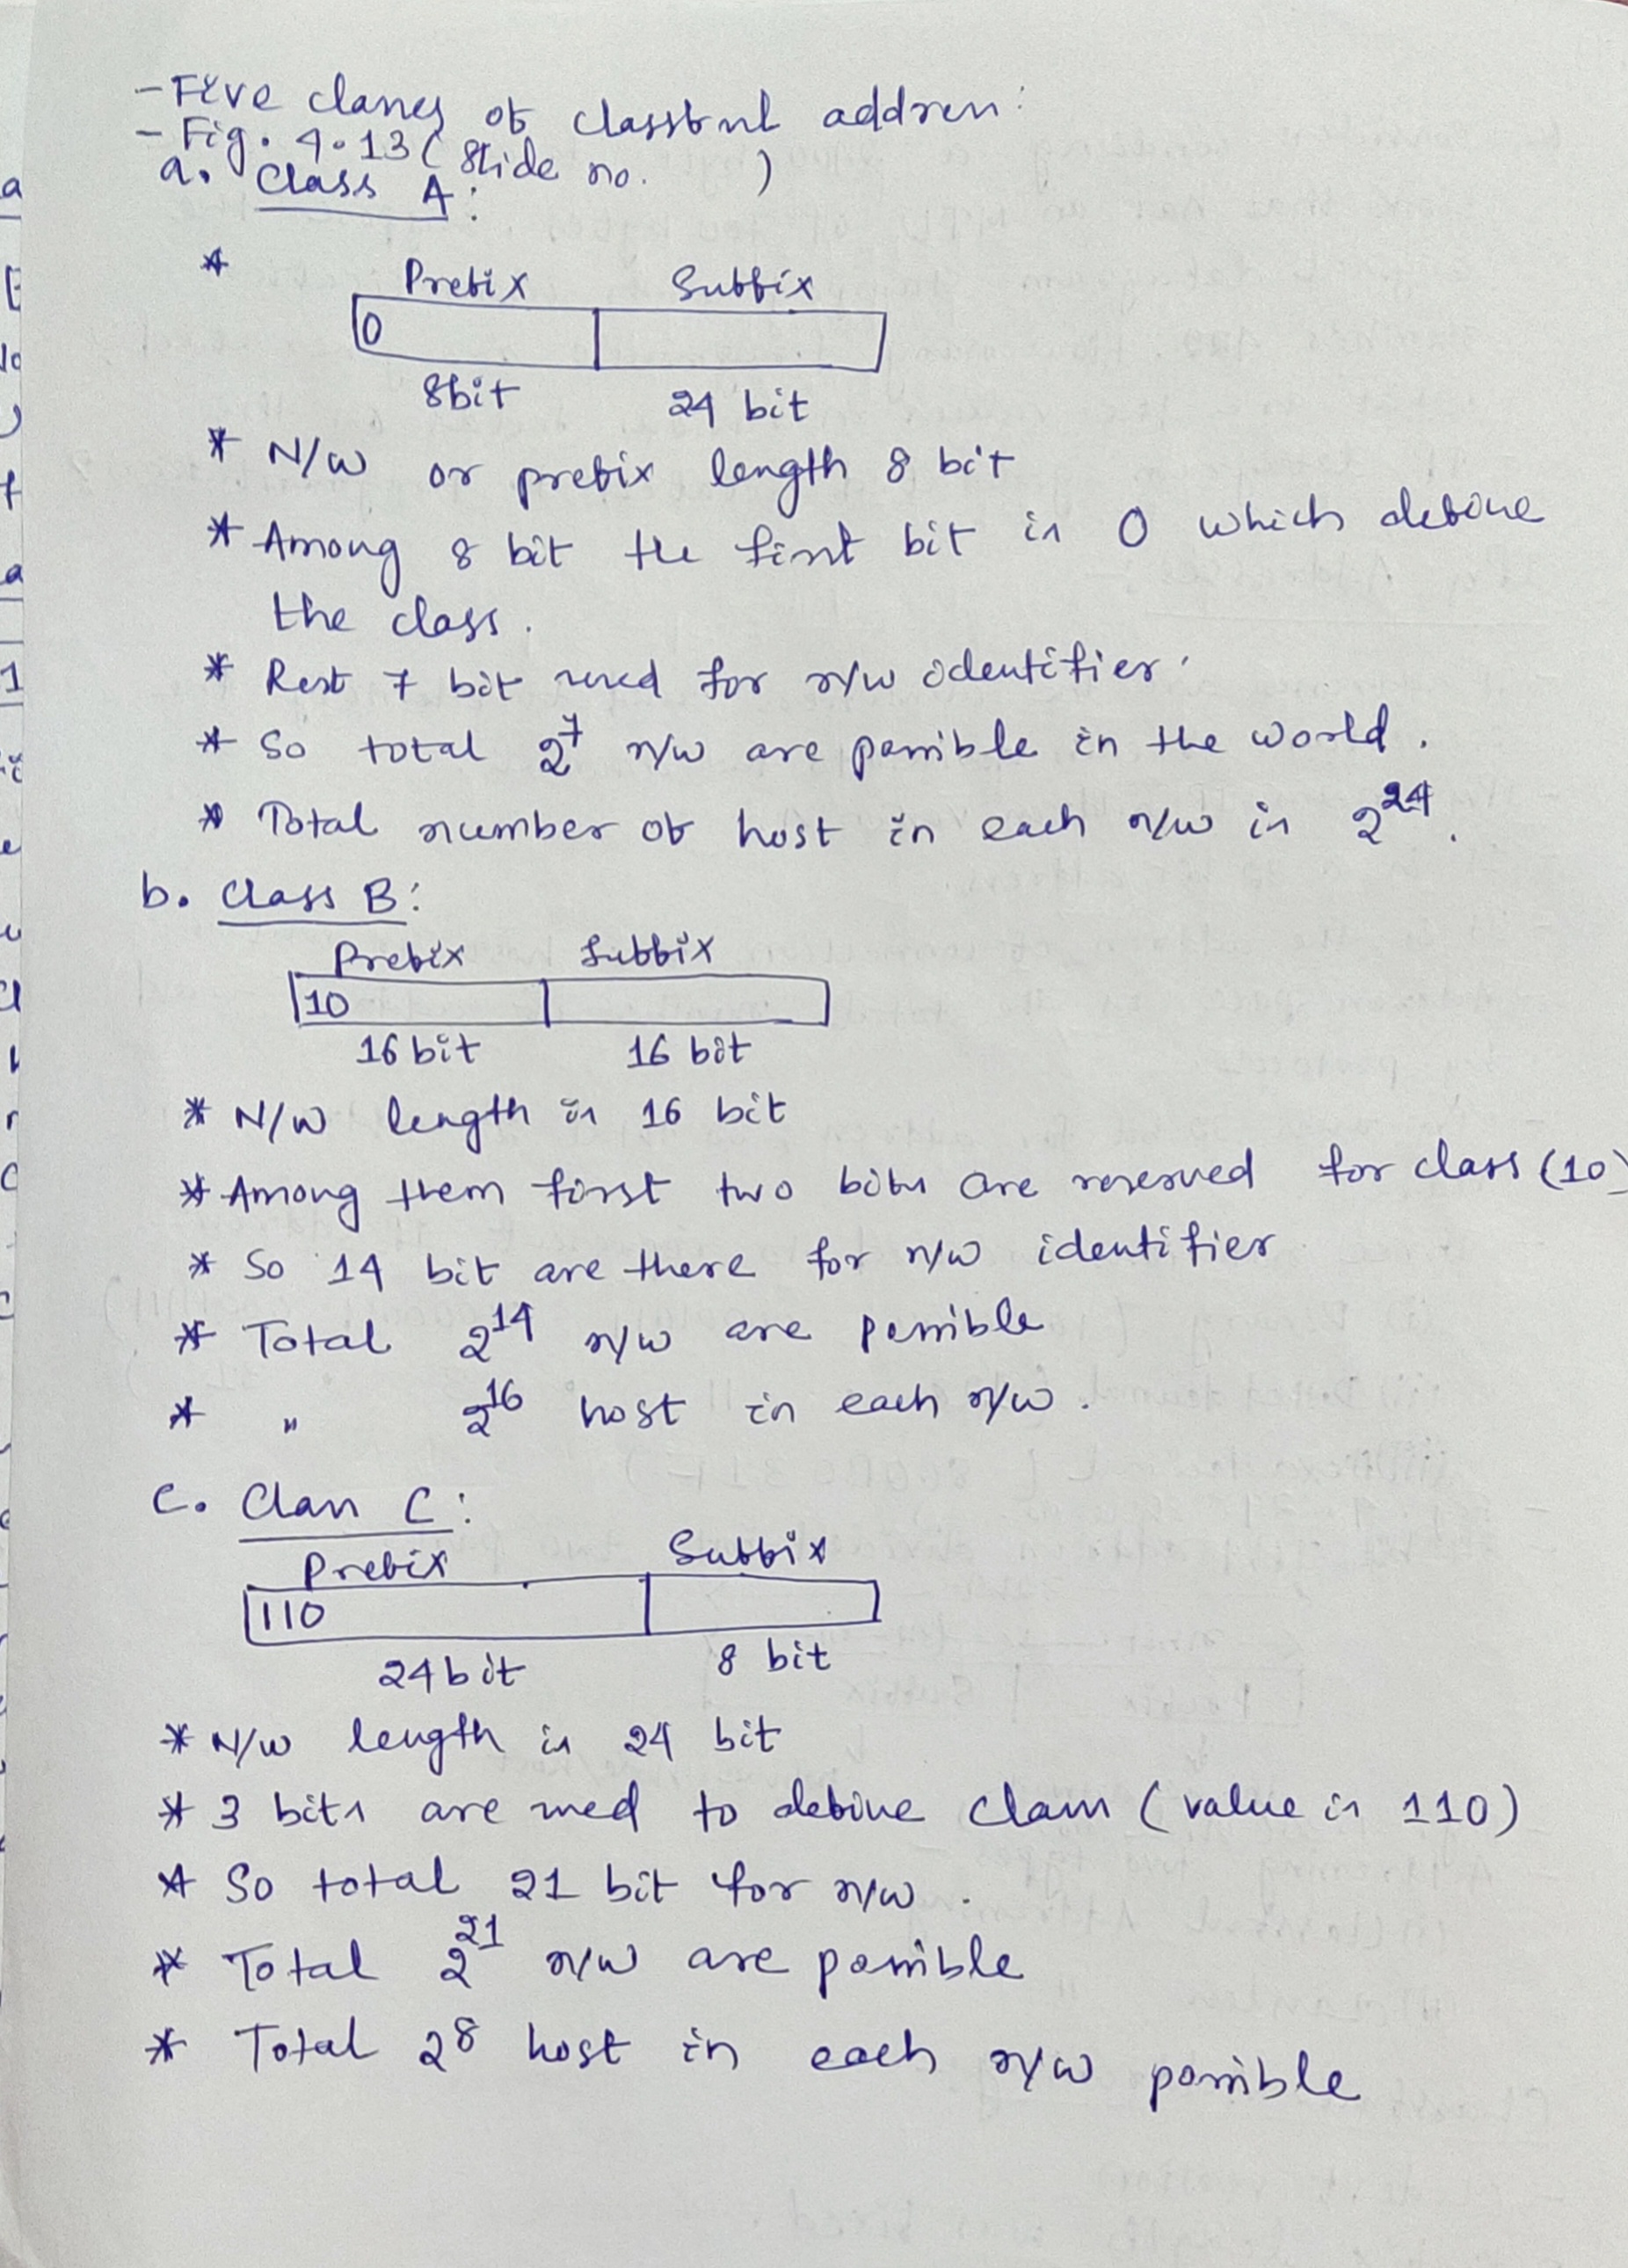 - Five classes of classful address:
- Fig. 4.13 ( Slide no.      )
a. Class A:
*
Prefix Suffix
0
8bit 24 bit
* N/w or prefix length 8 bit
* Among 8 bit the first bit is 0 which define
the class.
* Rest 7 bit used for n/w identifier.
* So total 2^7 n/w are possible in the world.
* Total number of host in each n/w is 2^24.
b. Class B:
Prefix Suffix
10
16 bit 16 bit
* N/w length is 16 bit
* Among them first two bits are reserved for class (10)
* So 14 bit are there for n/w identifier
* Total 2^14 n/w are possible
* " 2^16 host in each n/w.
c. Class C:
Prefix Suffix
110
24 bit 8 bit
* N/w length is 24 bit
* 3 bits are used to define class (value is 110)
* So total 21 bit for n/w.
* Total 2^21 n/w are possible
* Total 2^8 host in each n/w possible